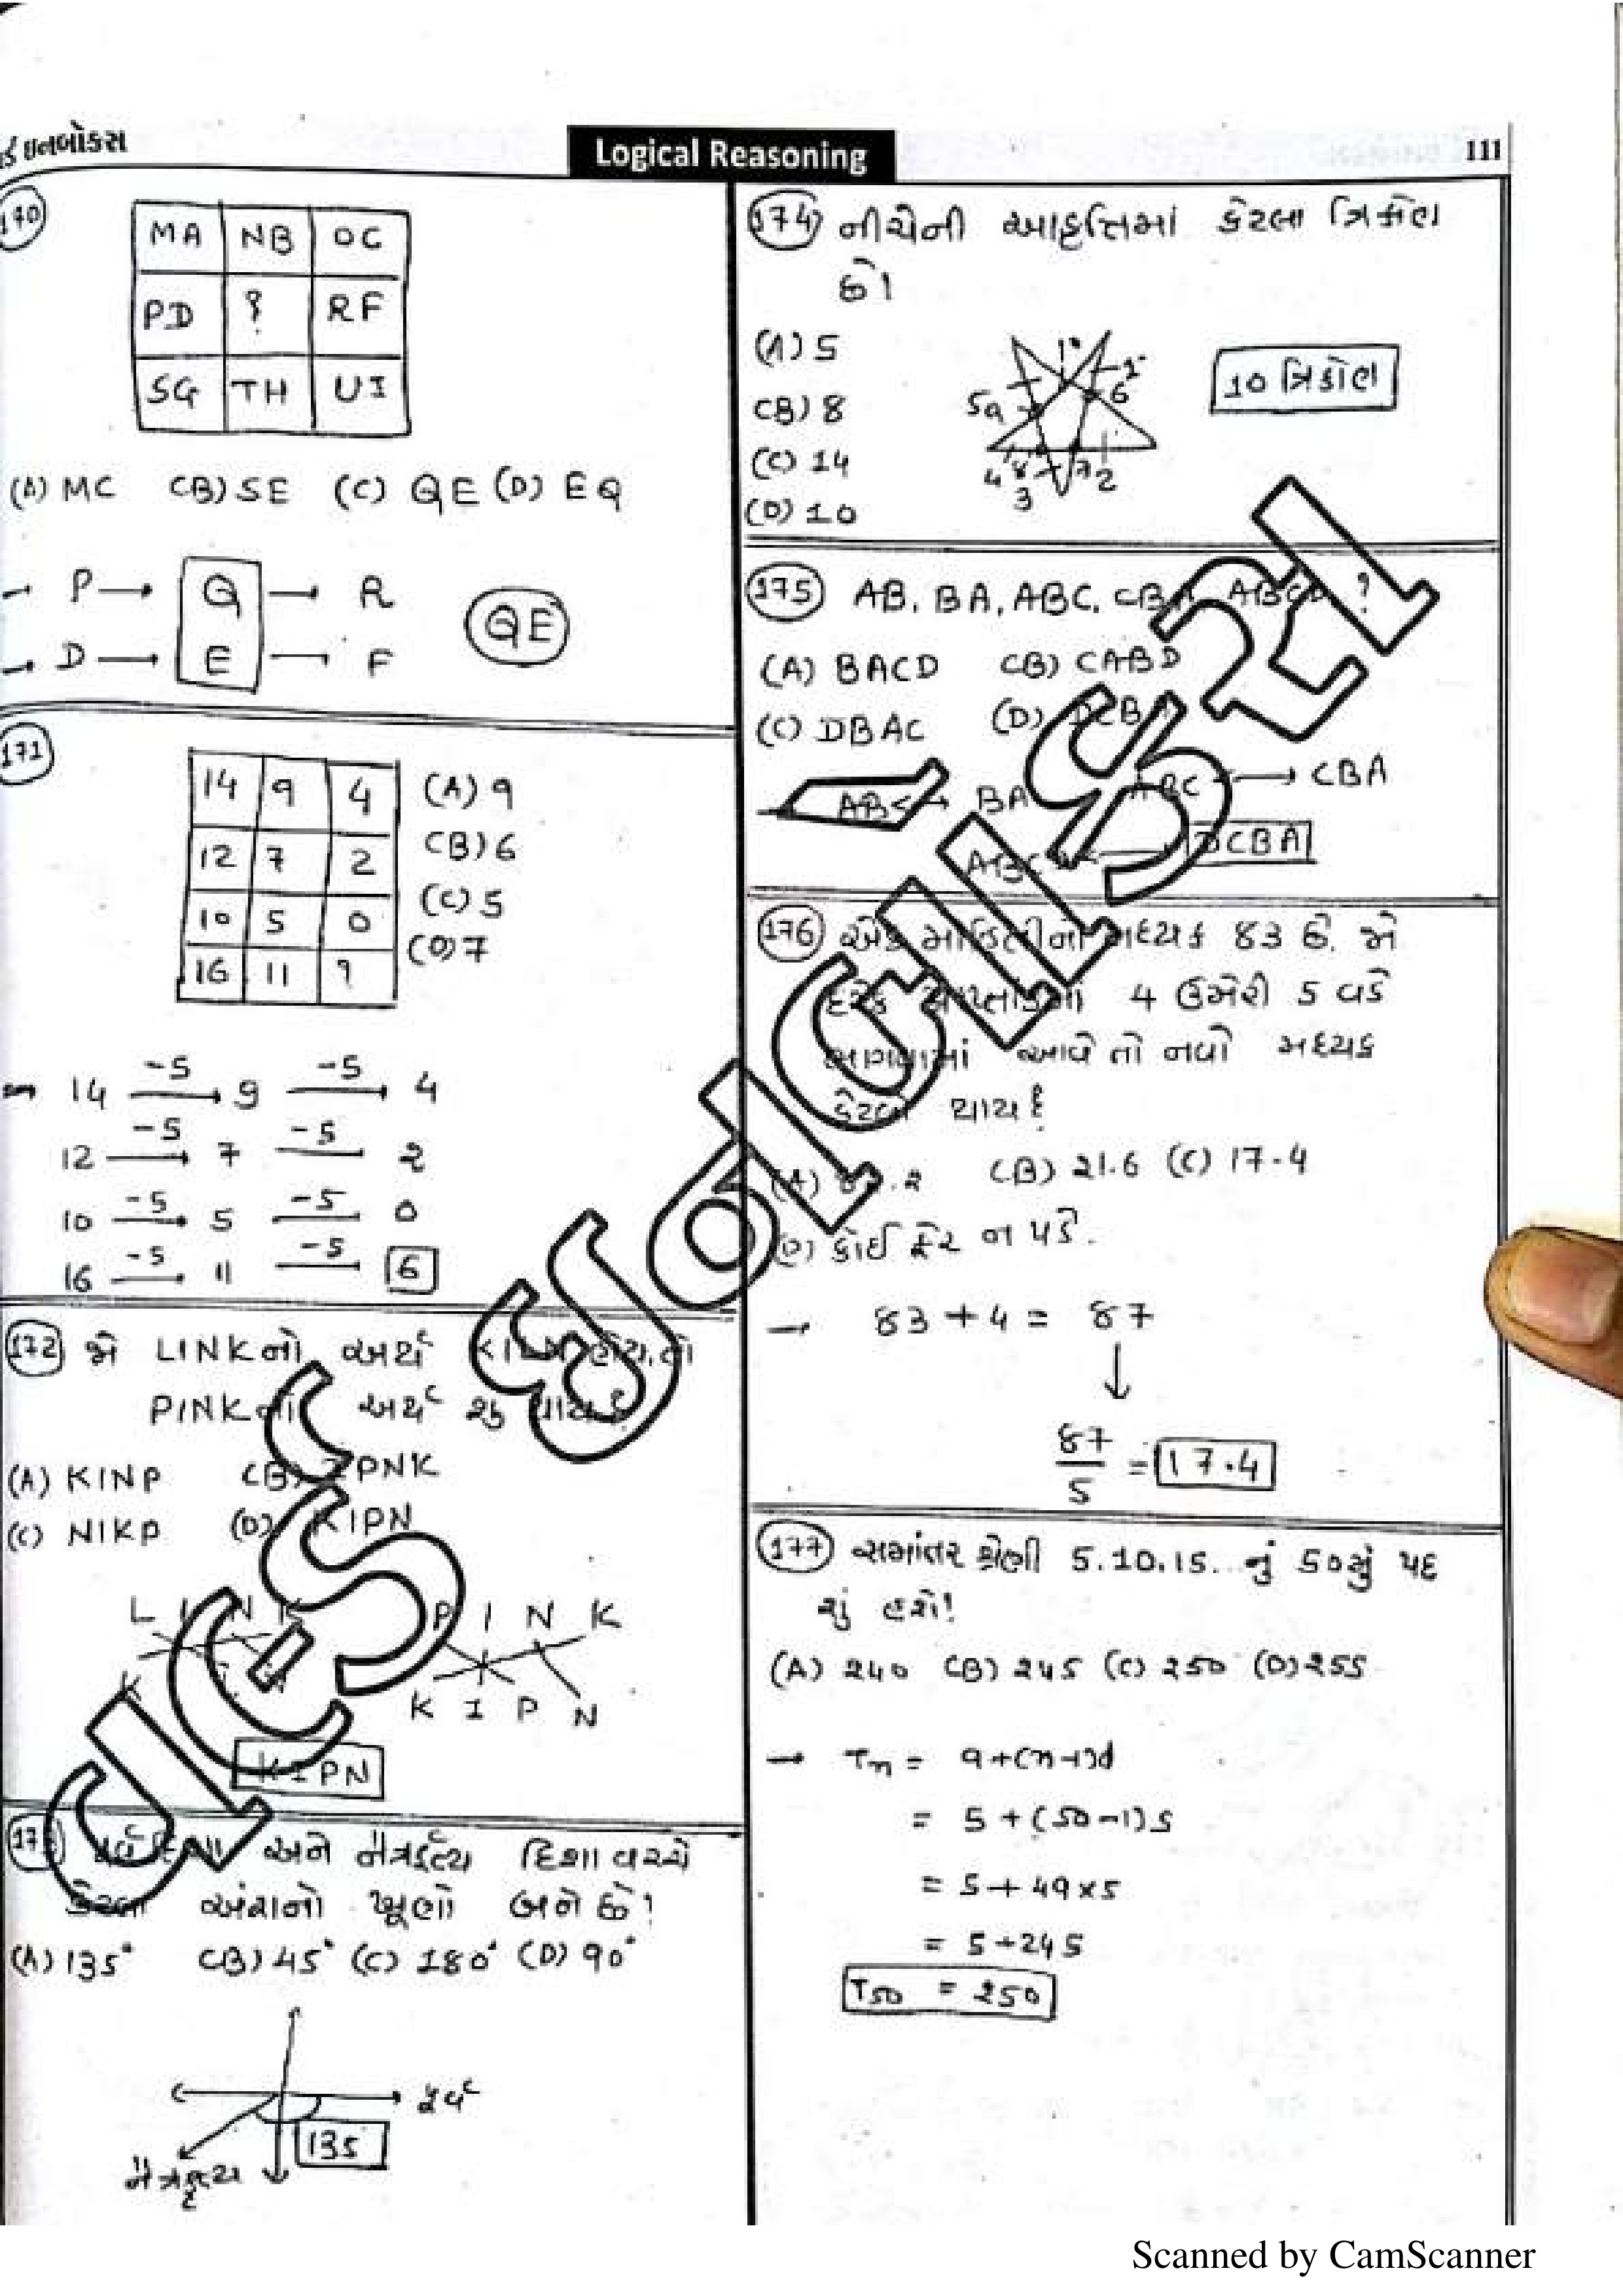 ઈનબોક્સ
Logical Reasoning
111
170
MA NB OC
PD ? RF
SG TH UI
(A) MC (B) SE (C) QE (D) EQ
→ P → Q → R
→ D → E → F
QE
171
14 9 4
12 7 2
10 5 0
16 11 ?
(A) 9
(B) 6
(C) 5
(D) 7
→ 14 -5 9 -5 4
12 -5 7 -5 2
10 -5 5 -5 0
16 -5 11 -5 6
172 જો LINK નો અર્થ
PINK નો અર્થ શું
(A) KINP (B) IPNK
(C) NIKP (D) KIPN
L I N K P I N K
K I P N
KIPN
અને નૈઋત્ય દિશા વચ્ચે
કેટલા અંશનો ખૂણો બને છે!
(A) 135° (B) 45° (C) 180° (D) 90°
પૂર્વ
135
નૈઋત્ય
174 નીચેની આકૃત્તિમાં કેટલા ત્રિકોણ
છે!
(A) 5
(B) 8
(C) 14
(D) 10
10 ત્રિકોણ
175 AB, BA, ABC, CBA, ABCD ?
(A) BACD (B) CABD
(C) DBAC (D) DCBA
AB ↔ BA ABC → CBA
ABCD → DCBA
176 એક માહિતીનો મધ્યક 83 છે. જો
દરેક 4 ઉમેરી 5 વડે
ભાગવામાં આવે તો નવો મધ્યક
કેટલો થાય?
(B) 21.6 (C) 17.4
(D) કોઈ ફેર ન પડે.
→ 83 + 4 = 87
87/5 = 17.4
177 સમાંતર શ્રેણી 5.10.15... નું 50મું પદ
શું હશે!
(A) 240 (B) 245 (C) 250 (D) 255
→ Tn = a+(n-1)d
= 5 + (50-1)5
= 5 + 49×5
= 5+245
T50 = 250
Scanned by CamScanner